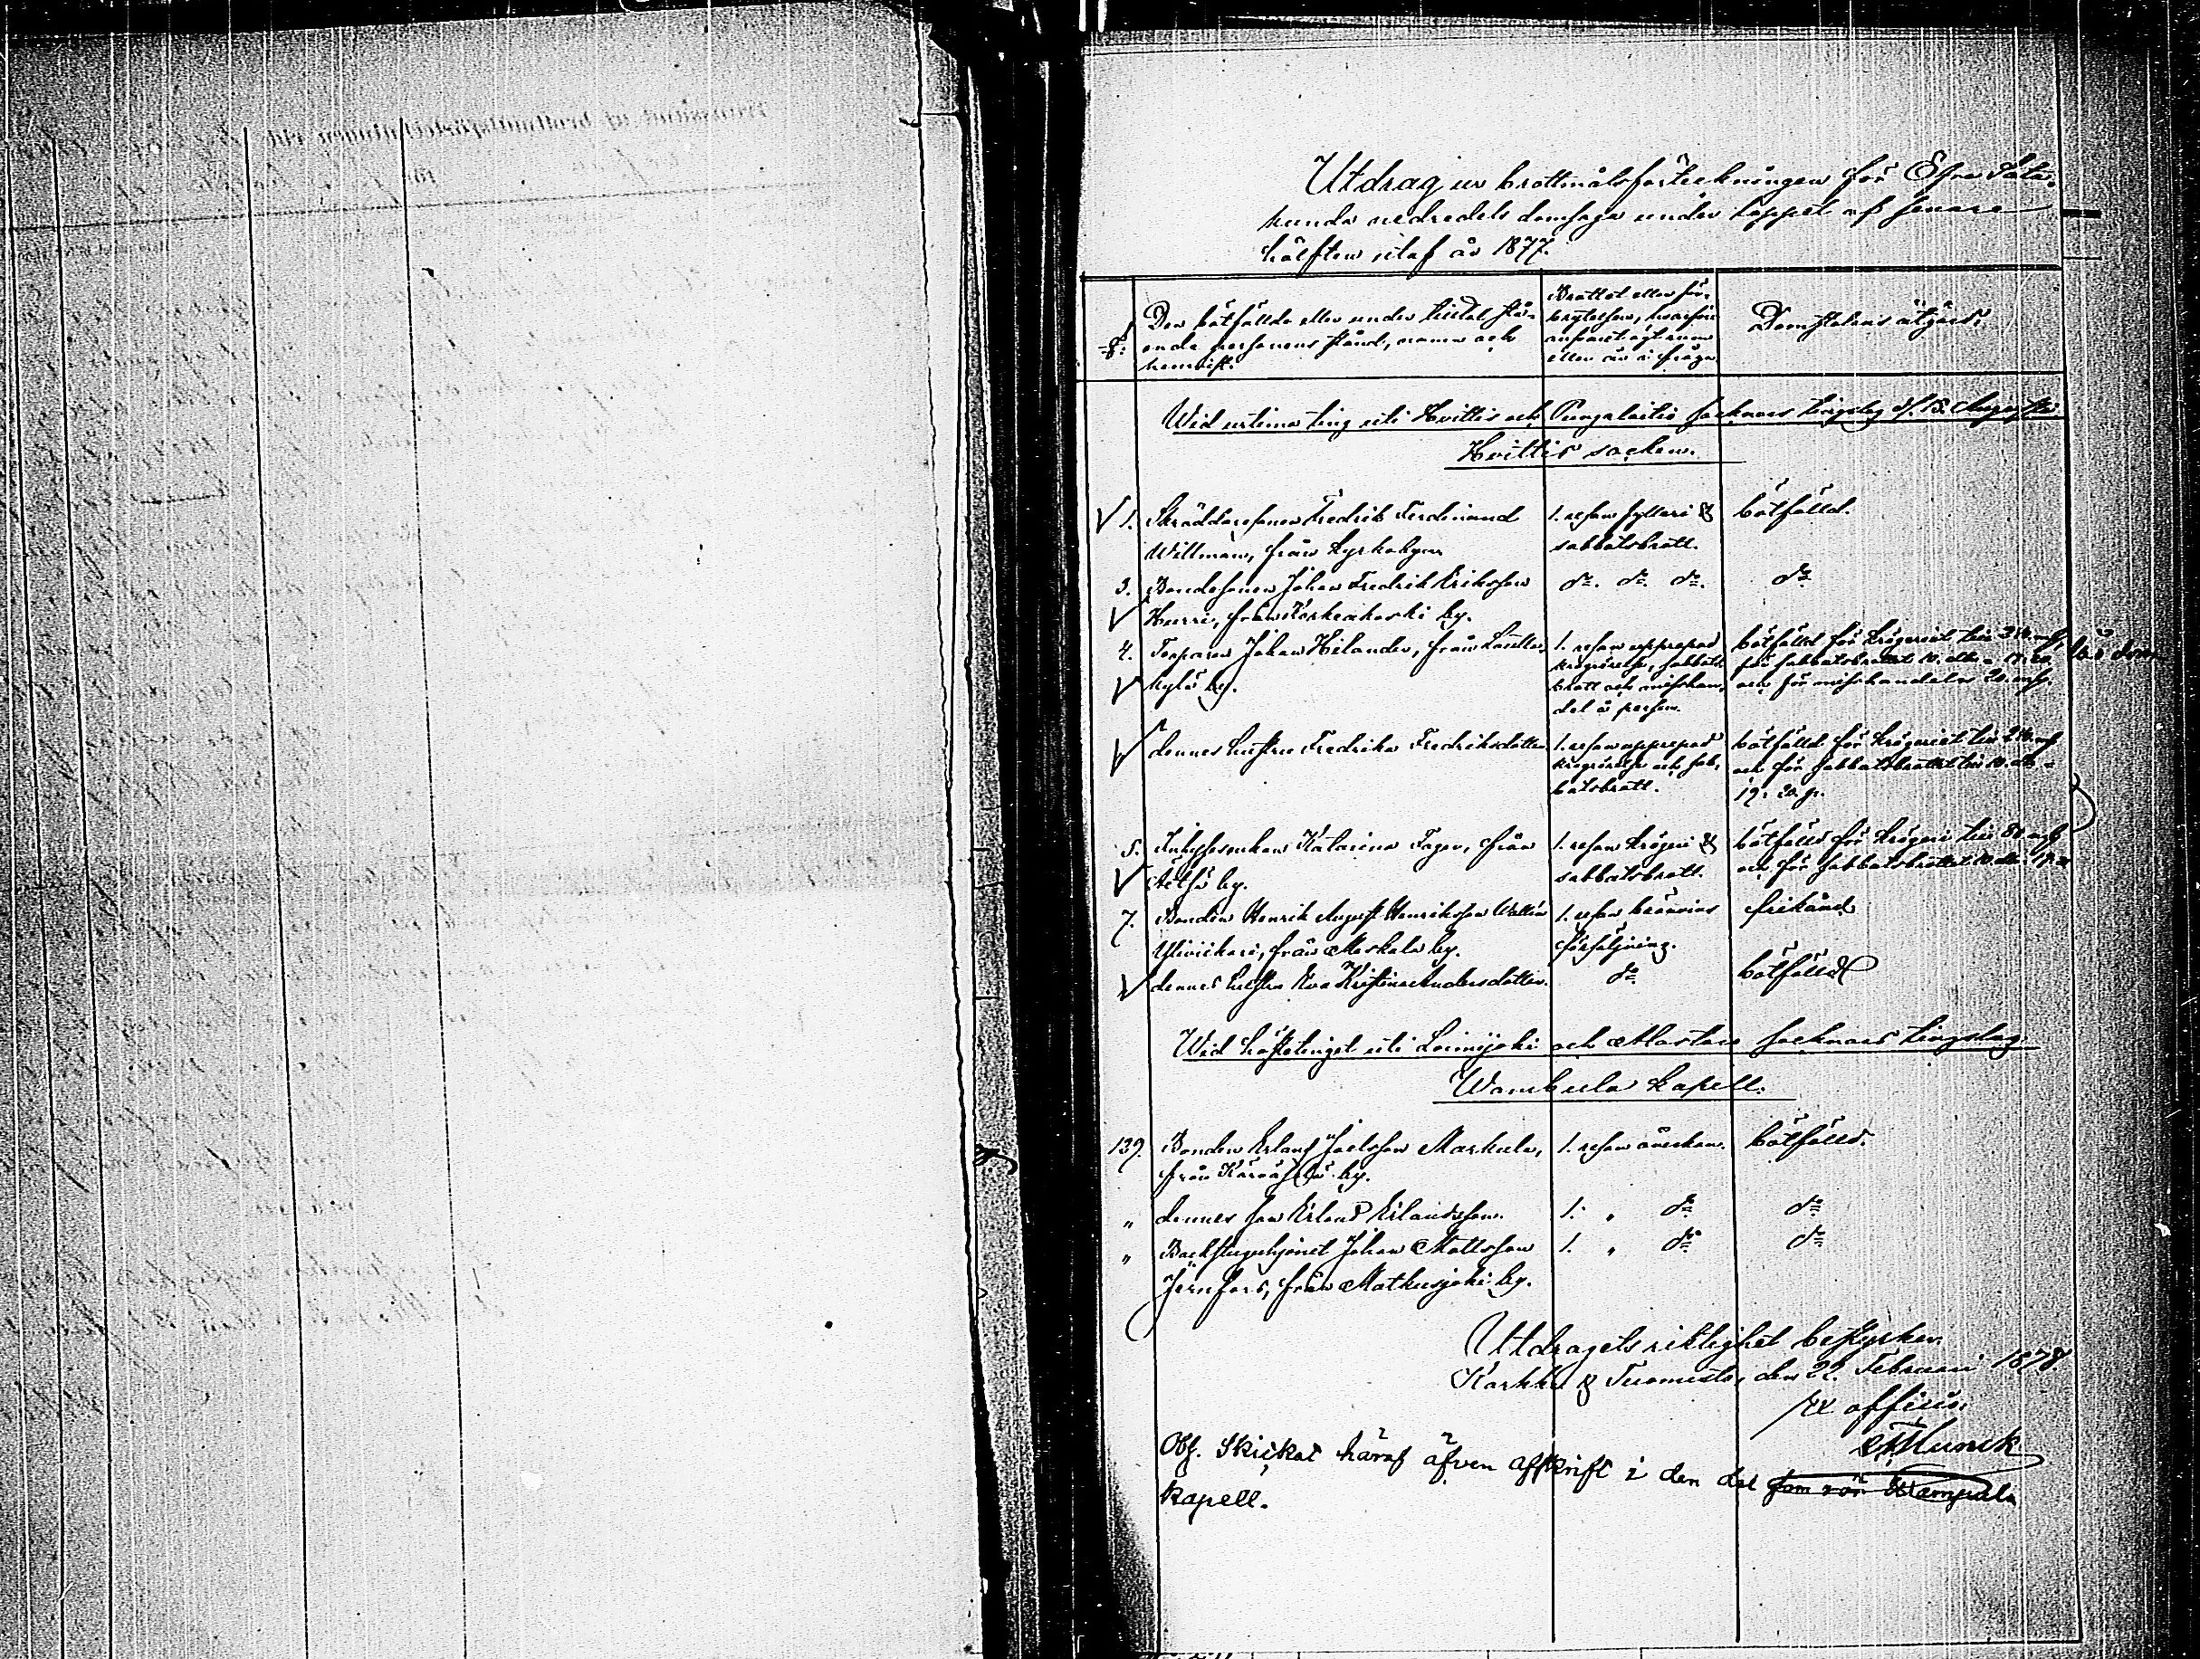 Utdrag ur brottmålsförteckningen för Efra Sata-
kunda nedredels domsaga under loppet af senare
hälften utaf år 1877.
Den bötfällde eller under tilltal stå-
ende personens stånd, namn och
hemvist.
Brottet eller för-
brytelsen, hvarföre
ansvar ägt rum
eller är i fråga
Domstolens åtgärd.
Wid urtima ting uti Hvittis och Pungalaitio socknars tingslag d. 15. Augusti.
Hvittis socken.
1. Skräddaresonen Fredrik Ferdinand
Willman, från Kyrkobyn
1. resan fylleri &
sabbatsbrott.
bötfälld.
3. Bondesonen Johan Fredrik Eriksson
Hurri, från Korkeakoski by.
do. do. do.
do
4. Torparen Johan Helander, från
kylä by.
1. resan upprepad
krögerirörelse, sabbats
brott och misshan-
del å person.
bötfälld för krögeriet till mk,
för sabbatsbrottet 10. dlr = 19. 20.
och för misshandeln 20. mk.
dennes hustru Fredrika Fredriksdotter
1. resan upprepad
krögerirörelse och sab-
batsbrott.
bötfälld för krögeriet till mk
och för sabbatsbrottet till 10. dlr =
19. 20. p.
5. Inhyseskan Katarina Fager, från
by.
1. resan krögeri &
sabbatsbrott.
bötfälld för krögeri till 80 mk
och för sabbatsbrottet 10. dlr. 19. 20
7. Bonden Henrik August Henriksson Wallin
från Meskala by.
1. resan brännvins
försäljning.
frikänd
dennes hustru Eva Kristina Andersdotter.
do
bötfälld
Wid hösttinget uti Loimijoki och Alastaro socknars tingslag.
Wambula kapell.
139. Bonden Erland Joelsson Markula,
från by.
1. resan åverkan.
bötfälld.
" dennes son Erland Erlandsson.
1. " do
do
" Backstuguhjonet Johan Mattsson
Jernfors, från Matkusjoki by.
1. " do
do
Utdragets riktighet bestyrker.
Karkku & Tuomisto, den 22. Februari 1878.
Ex officio.
Munck
Obs. Skickat häraf äfven afskrift i den del som rör Wampula
kapell.